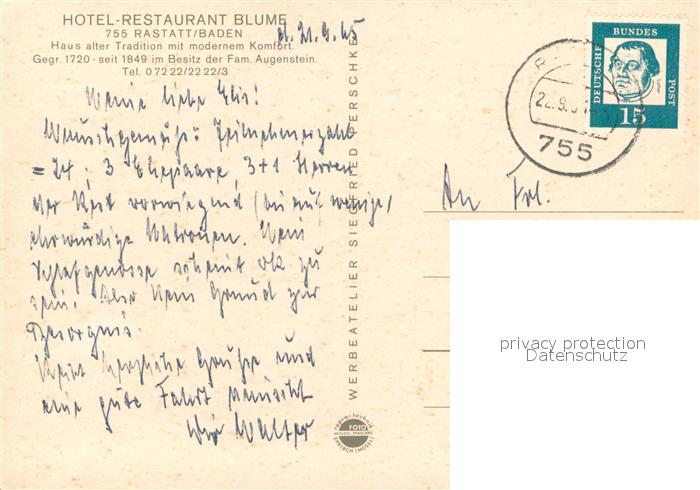 HOTEL-RESTAURANT BLUME
755 RASTATT/BADEN
Haus alter Tradition mit modernem Komfort.
Gegr. 1720 - seit 1849 im Besitz der Fam. Augenstein.
Tel. 07222/2222/3
d. 21.9.65
Meine liebe Elis!
Wunschgemäß: Teilnehmerzahl
= 24; 3 Ehepaare, 3+1 Herren
der Rest vorwiegend (bis auf wenige)
ehrwürdige Matronen. Mein
Schlafgenosse scheint ok zu
sein. Also kein Grund zur
Besorgnis.
herzliche Grüße und
eine gute Fahrt wünscht
Dir Walter
An Frl.
WERBEATELIER SIEGFRIED PERSCHKE
DEUTSCHE BUNDES POST
15
755
FOTO
privacy protection
Datenschutz